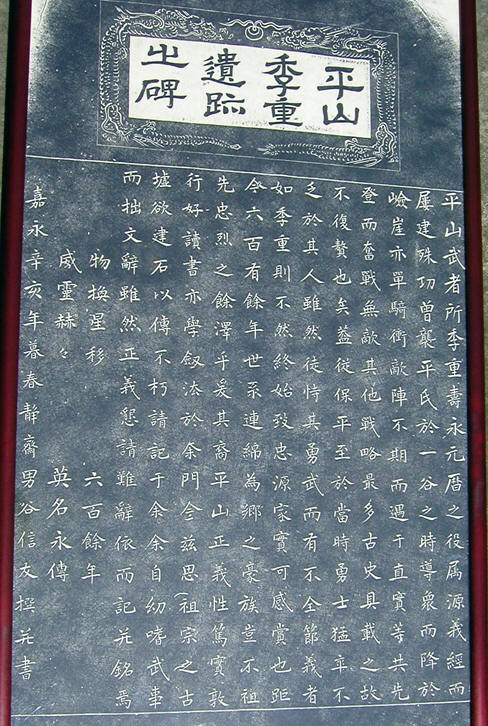 平山
季重
遺跡
之碑
平山武者所季重壽永元暦之役属源義經而
屢建殊功曽襲平氏於一谷之時導衆而降於
嶮崖亦單騎衝敵陣不期而遇于直實等共先
登而奮戰無敵其他戰略最多古史具載之故
不復贅也矣蓋従保平至於當時勇士猛卒不
乏於其人雖然徒恃其勇武而有不全節義者
如季重則不然終始致忠源家實可感賞也距
今六百有餘年世系連綿為郷之豪族豈不祖
先忠烈之餘澤乎爰其裔平山正義性篤實敦
行好讀書亦學劔法於余門今茲思祖宗之古
墟欲建石以傳不朽請記于余余自幼嗜武事
而拙文辭雖然正義懇請難辭依而記并銘焉
物換星移 六百餘年
威靈赫々 英名永傳
嘉永辛亥年暮春靜齋男谷信友撰并書